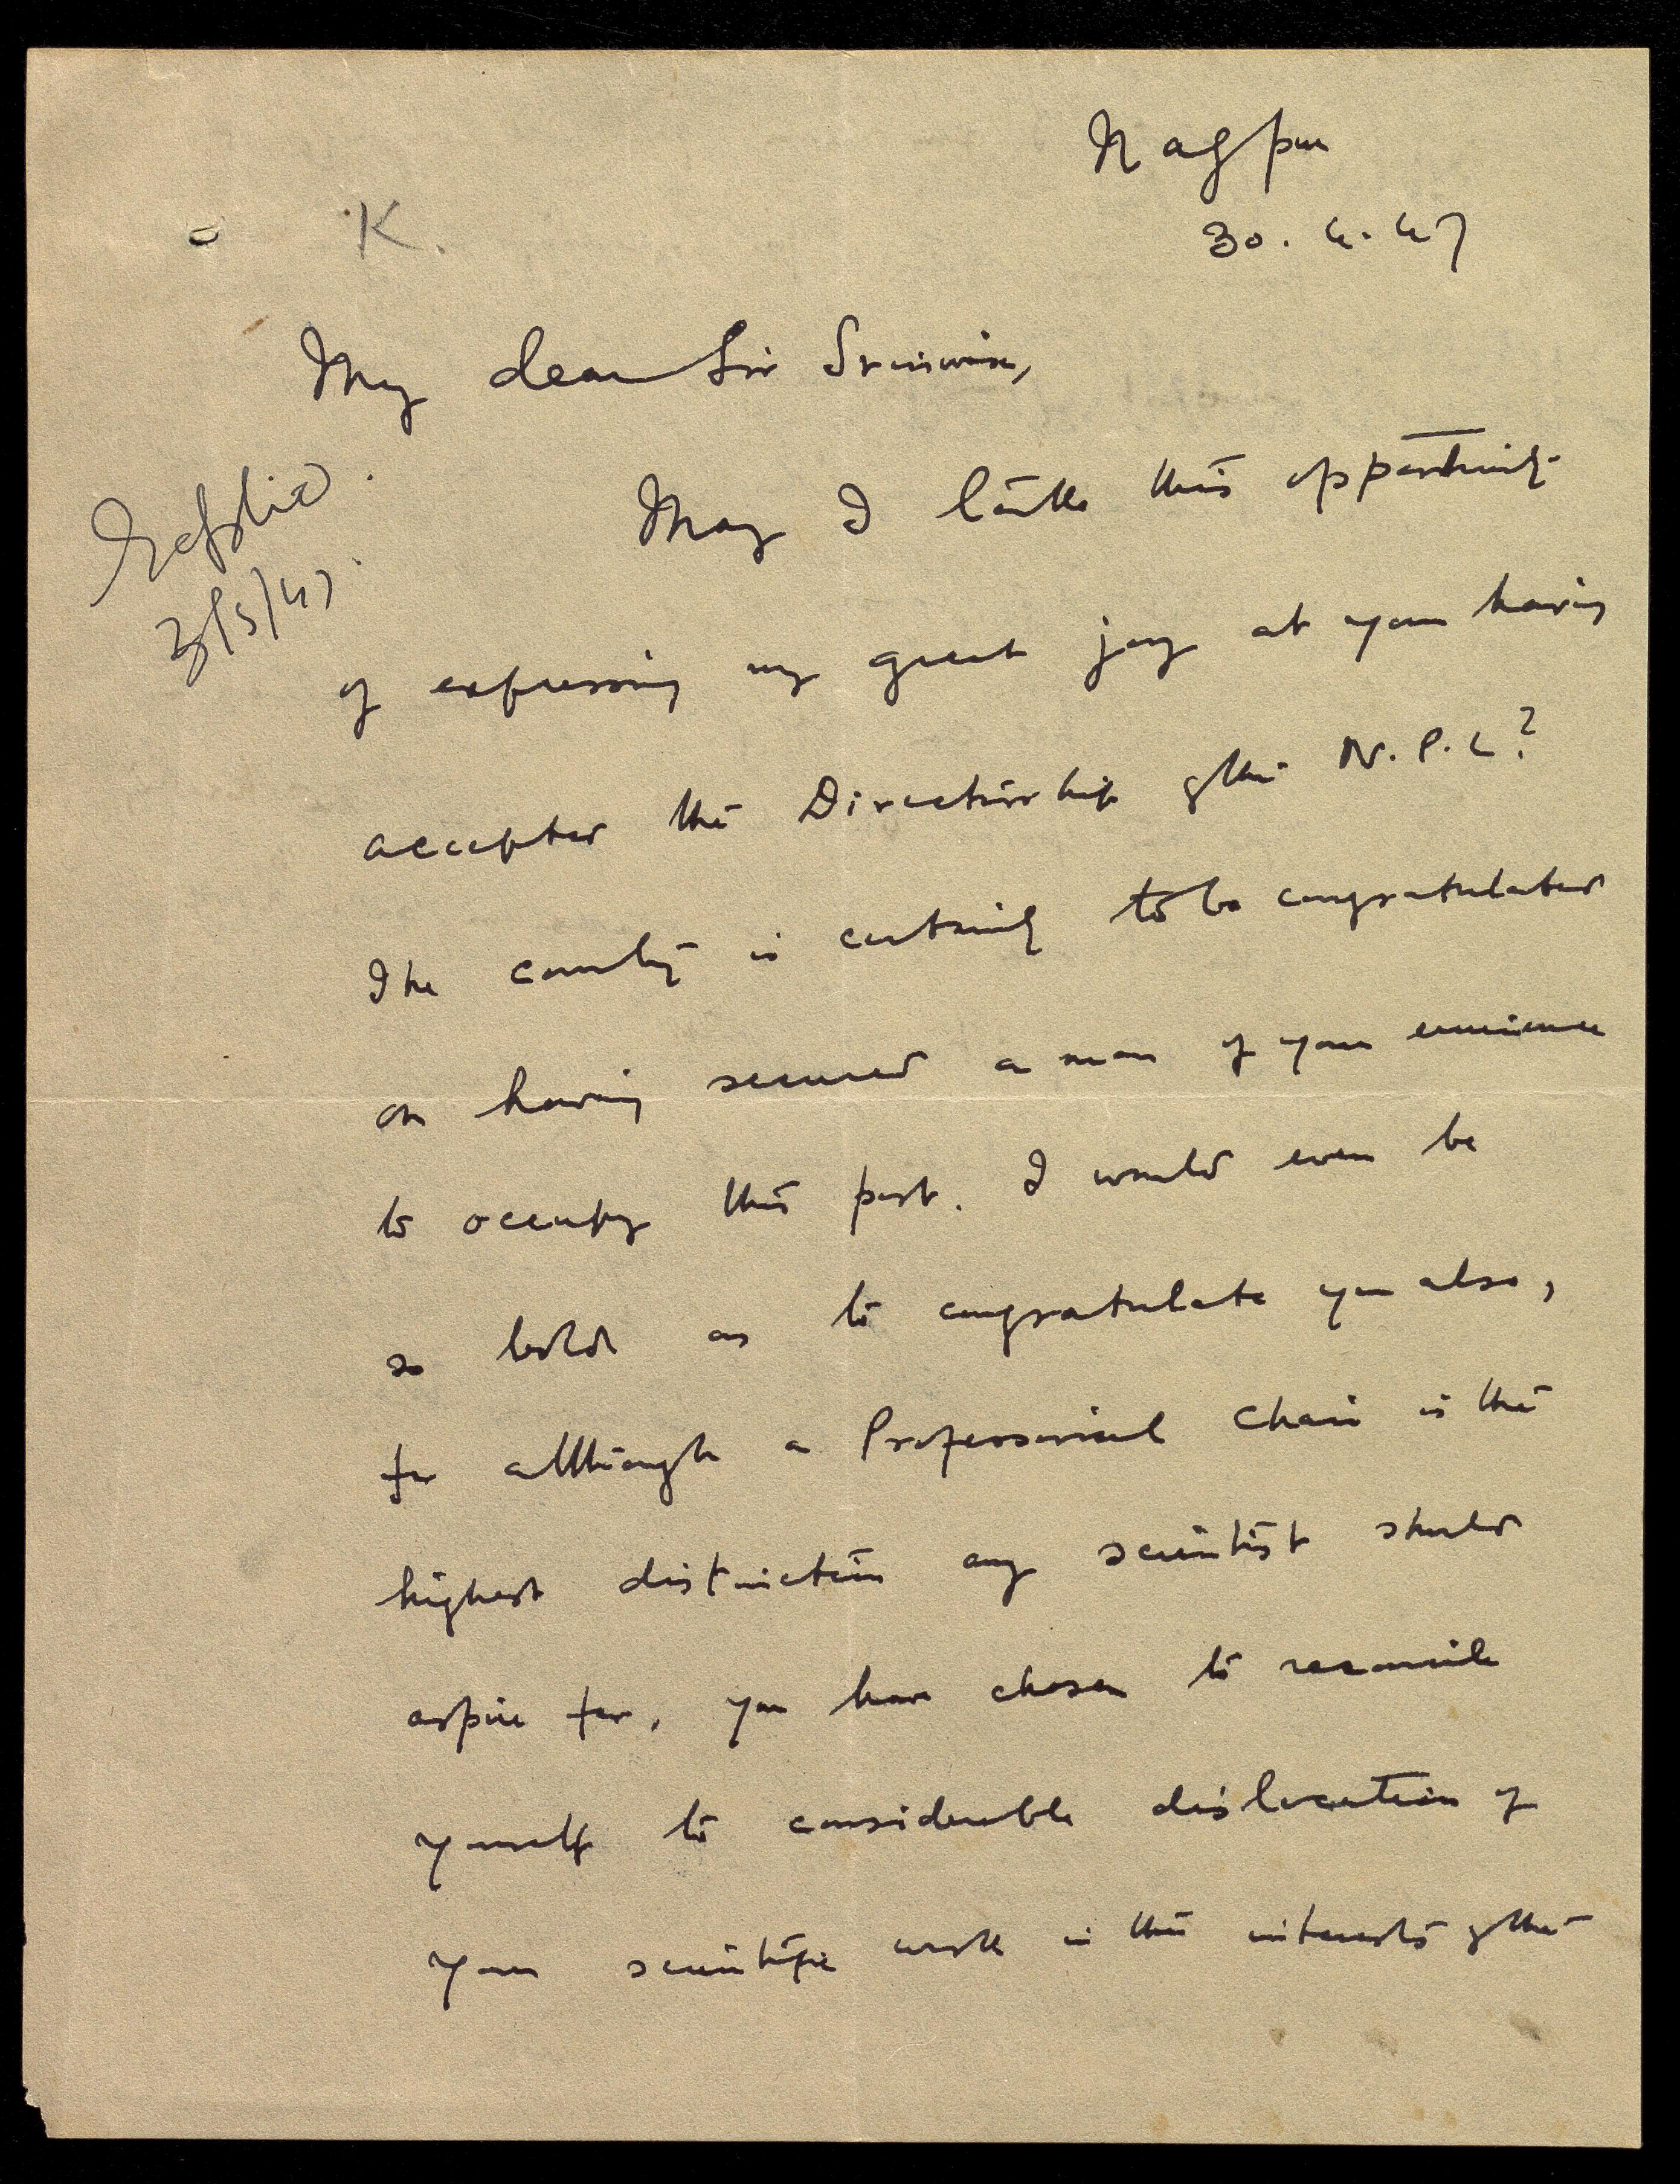 Nagpur
30. 4. 47
K.
My dear Sir Srinivasa,
Replied.
3/5/47.
May I take this opportunity
of expressing my great joy at your having
accepted the Directorship of the N.P.L?
The country is certainly to be congratulated
on having secured a man of your eminence
to occupy this post. I would even be
so bold as to congratulate you also,
for although a Professorial Chair is the
highest distinction any scientist should
aspire for, you have chosen to reconcile
yourself to considerable dislocation of
your scientific work in the interests of the